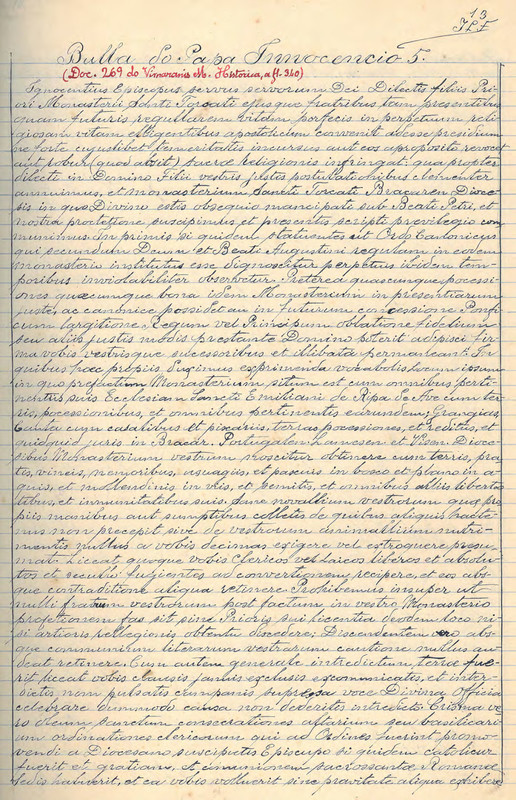 13
Bulla do Papa Innocencio 5.
(Doc. 269 do Vimaranis M. Historica, a fl. 240)
Ignocentius Episcopus servus servorum Dei Dilectis filiis Pri
ori Monasterii Sante Torcati ejusque fratribus tam presentibus
quam futuris regullarem vitam porfecis in perpetuum reli
giosam vitam elligentibus apostolicum convenit adesse presidium
ne forte cujuslibet temeritatis incursus aut eos aproposito revocet
aut robur (quod absit) sacræ religionis infringat: quapropter
dilecti in Domino Filii vestris justis postullationibus clementer
annuimus, et Monasterium Sancti Torcate Bracaren Dioce
sis in quo Divino estis obsequio mancipati sub Beati Petri, et
nostra protectione suscipimus et presentis scripti previlegio com
munimus. In primis si quidem statuentes ut Ordo Canonicus
qui secundum Deum et Beati Augustini regulam in eodem
monasterio institutus esse dignoscitur perpetuis ibidem tem
poribus inviolabiliter observetur. Preterea quascumque pocessi
ones quæcumque bona idem Monasterium in presentiarum
juste, ac canonice possidet au in futurum concessione Ponfi
cum largitione, Regum vel Principum oblatione fidelium
seu aliis justis modis prestante Domino poterit adipisci fir
ma vobis vestrisque sucessoribus et illibata permaneant. In
quibus hæc propiis duximus exprimenda vocabolis, locum ipsum
in quo prefactum Monasterium situm est cum omnibus perti
nentiis suis Ecclesiam Sancti Emiliani de Ripa de Ave cum ter
ris, pocessionibus, et omnibus pertinentis earundem; Grangias,
Cauta cum casalibus et piscariis, terras pocessiones, et reditus, et
quidquid juris in Bracar. Portugalen, Lamecen et Visen Dioce
sibus Monasterium vestrum noscitur obtinere cum terris, pra
tis, vineis, nemoribus, usuagiis, et pascuis in bosco et plano in a
quis, et mollendinis in viis, et semitis, et omnibus alliis liberta
tibus, et inmunitatibus suis. Sane novallium vestrorum quæ pro
piis manibus aut sumptibus collitis de quibus aliquis hacte
nus non precepit sive de vestrorum animallium nutri
mentis nullus a vobis decimas exigere vel extroquere presu
mat. Liceat quoque vobis clericos vel laicos liberos et absolu
tos et seculo fugientes ad conversionem recipere, et eos abs
que contraditione aliqua retinere. Prohibemus insuper ut
nulli fratrum vestrorum post factum in vestro Monasterio
profetionem fas sit sine Prioris sui licentia deodem loco ni
si artioris rellegionis obtentu discedere; Discendentem vero abs
que communium literarum vestrarum cautione nullus au
deat retinere. Cum autem generale intredictum terræ fue
rit liceat vobis clausis januis exclusis excomunicatis, et inter
dictis non pulsatis campanis supressa voce Divina Officia
celebrare dummodo causa non dederitis intredicti. Crisma ve
ro oleum sanctum consecrationes altarium seu basilicar
um ordinationes clericorum qui ad Ordines fuerint promo
vendi a Diocesano suscipietis Episcopo si quidem catolicus
fuerit et gratiam, et comunionem sacrossantæ Romanæ
Sedis habuerit, et ea vobis volluerit sine pravitate aliqua exhibere